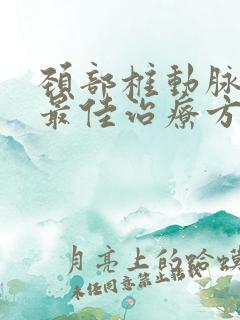 頚部椎動脉
最佳治療方
月亮上的蛤蟆
未经同意禁止转载